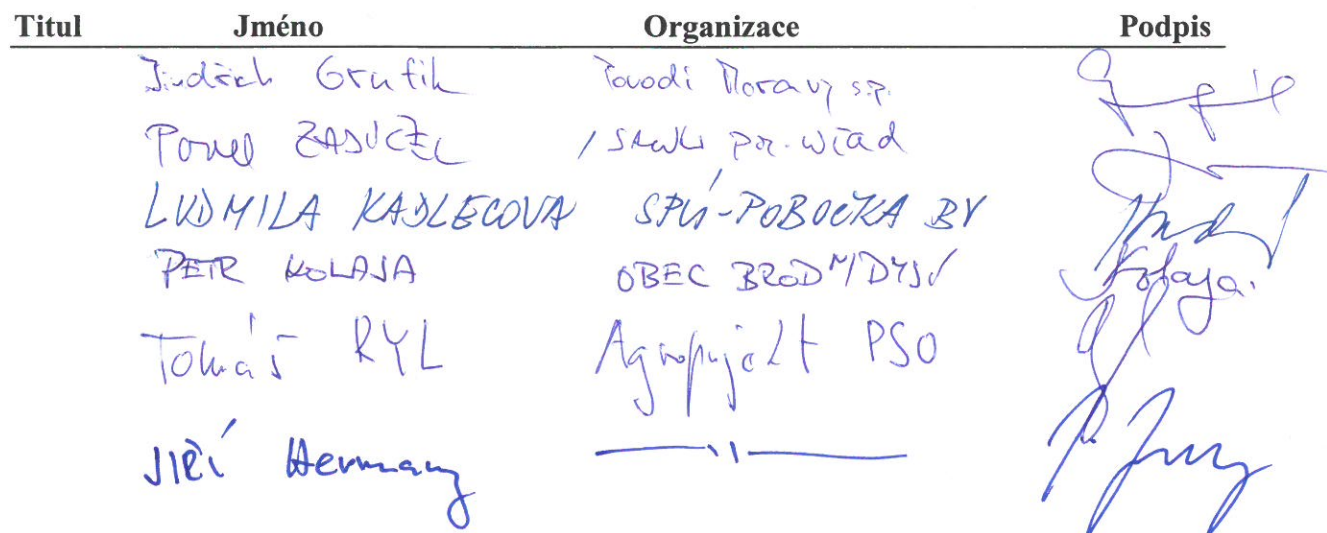 Titul Jméno Organizace Podpis
Jindřich Grufík Povodí Moravy s.p.
Pavel
LUDMILA KADLECOVA SPÚ-POBOČKA BV
PETR KOLAJA OBEC BROD N/DYJÍ Kolaja.
Tomáš RYL Agroprojekt PSO
JIŘÍ Hermany —"—